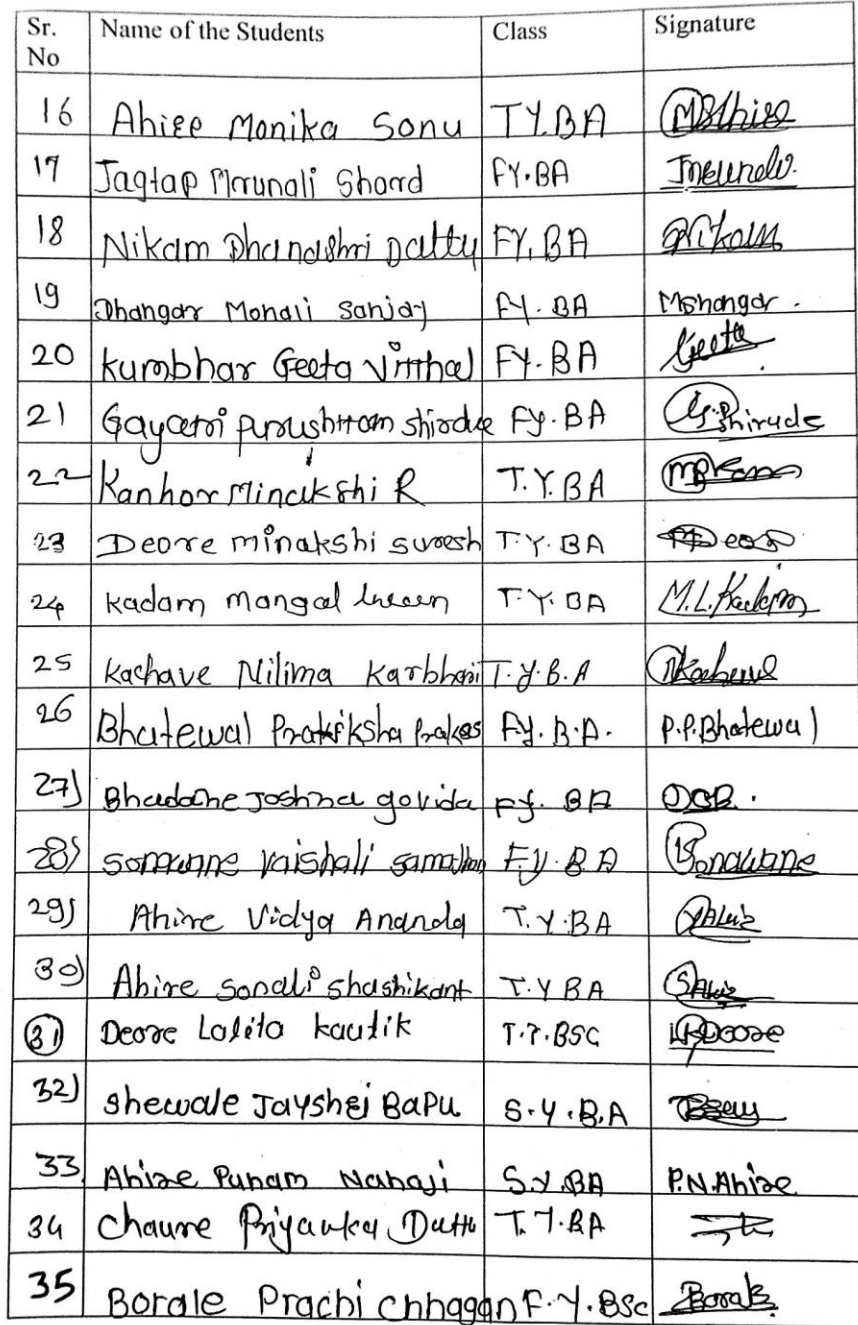 Sr. No Name of the Students Class Signature
16 Ahire Monika Sonu TY.BA
17 Jagtap Mrunali Sharad FY.BA
18 Nikam Dhanashri Dattu FY.BA Nikam
19 Dhangar Monali Sanjay FY.BA
20 Kumbhar Geeta Vitthal FY.BA Geeta
21 Gayatri purushttam shirude FY.BA Shirude
22 Kanhor Minakshi R T.Y.BA
23 Deore minakshi suresh T.Y.BA
24 Kadam mangal T.Y.BA M.L.Kadam
25 Kachave Nilima Karbhari T.Y.B.A
26 Bhatewal Pratiksha Prakas FY.B.A. P.P.Bhatewal
27) Bhadane Joshna govida FY.BA
28) sonawane vaishali samadhan F.Y.B.A Sonawane
29) Ahire Vidya Ananda T.Y.BA
30) Ahire sonali shashikant T.Y BA
31 Deore Lalita kautik T.Y.BSC Deore
32) Shewale Jayshri BaPu S.Y.B.A
33 Ahire Punam Nanaji S.Y.BA P.N.Ahire
34 Chaure Priyanka Dattu T.Y.BA
35 Borale Prachi Chhagan F.Y.BSc Borale